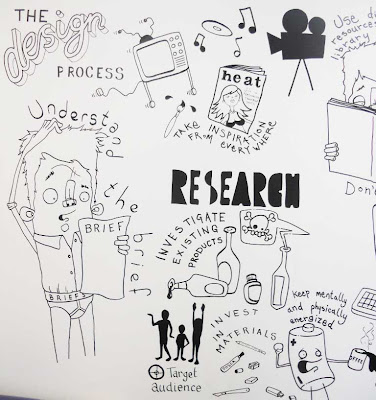 THE
design
PROCESS
heat
TAKE INSPIRATION
FROM EVERYWHERE
Understand
the brief
BRIEF
BRIEFS
RESEARCH
INVESTIGATE
EXISTING
PRODUCTS
INVEST
IN
MATERIALS
Target
audience
Keep mentally
and physically
energized
Use
resources
library
Don'